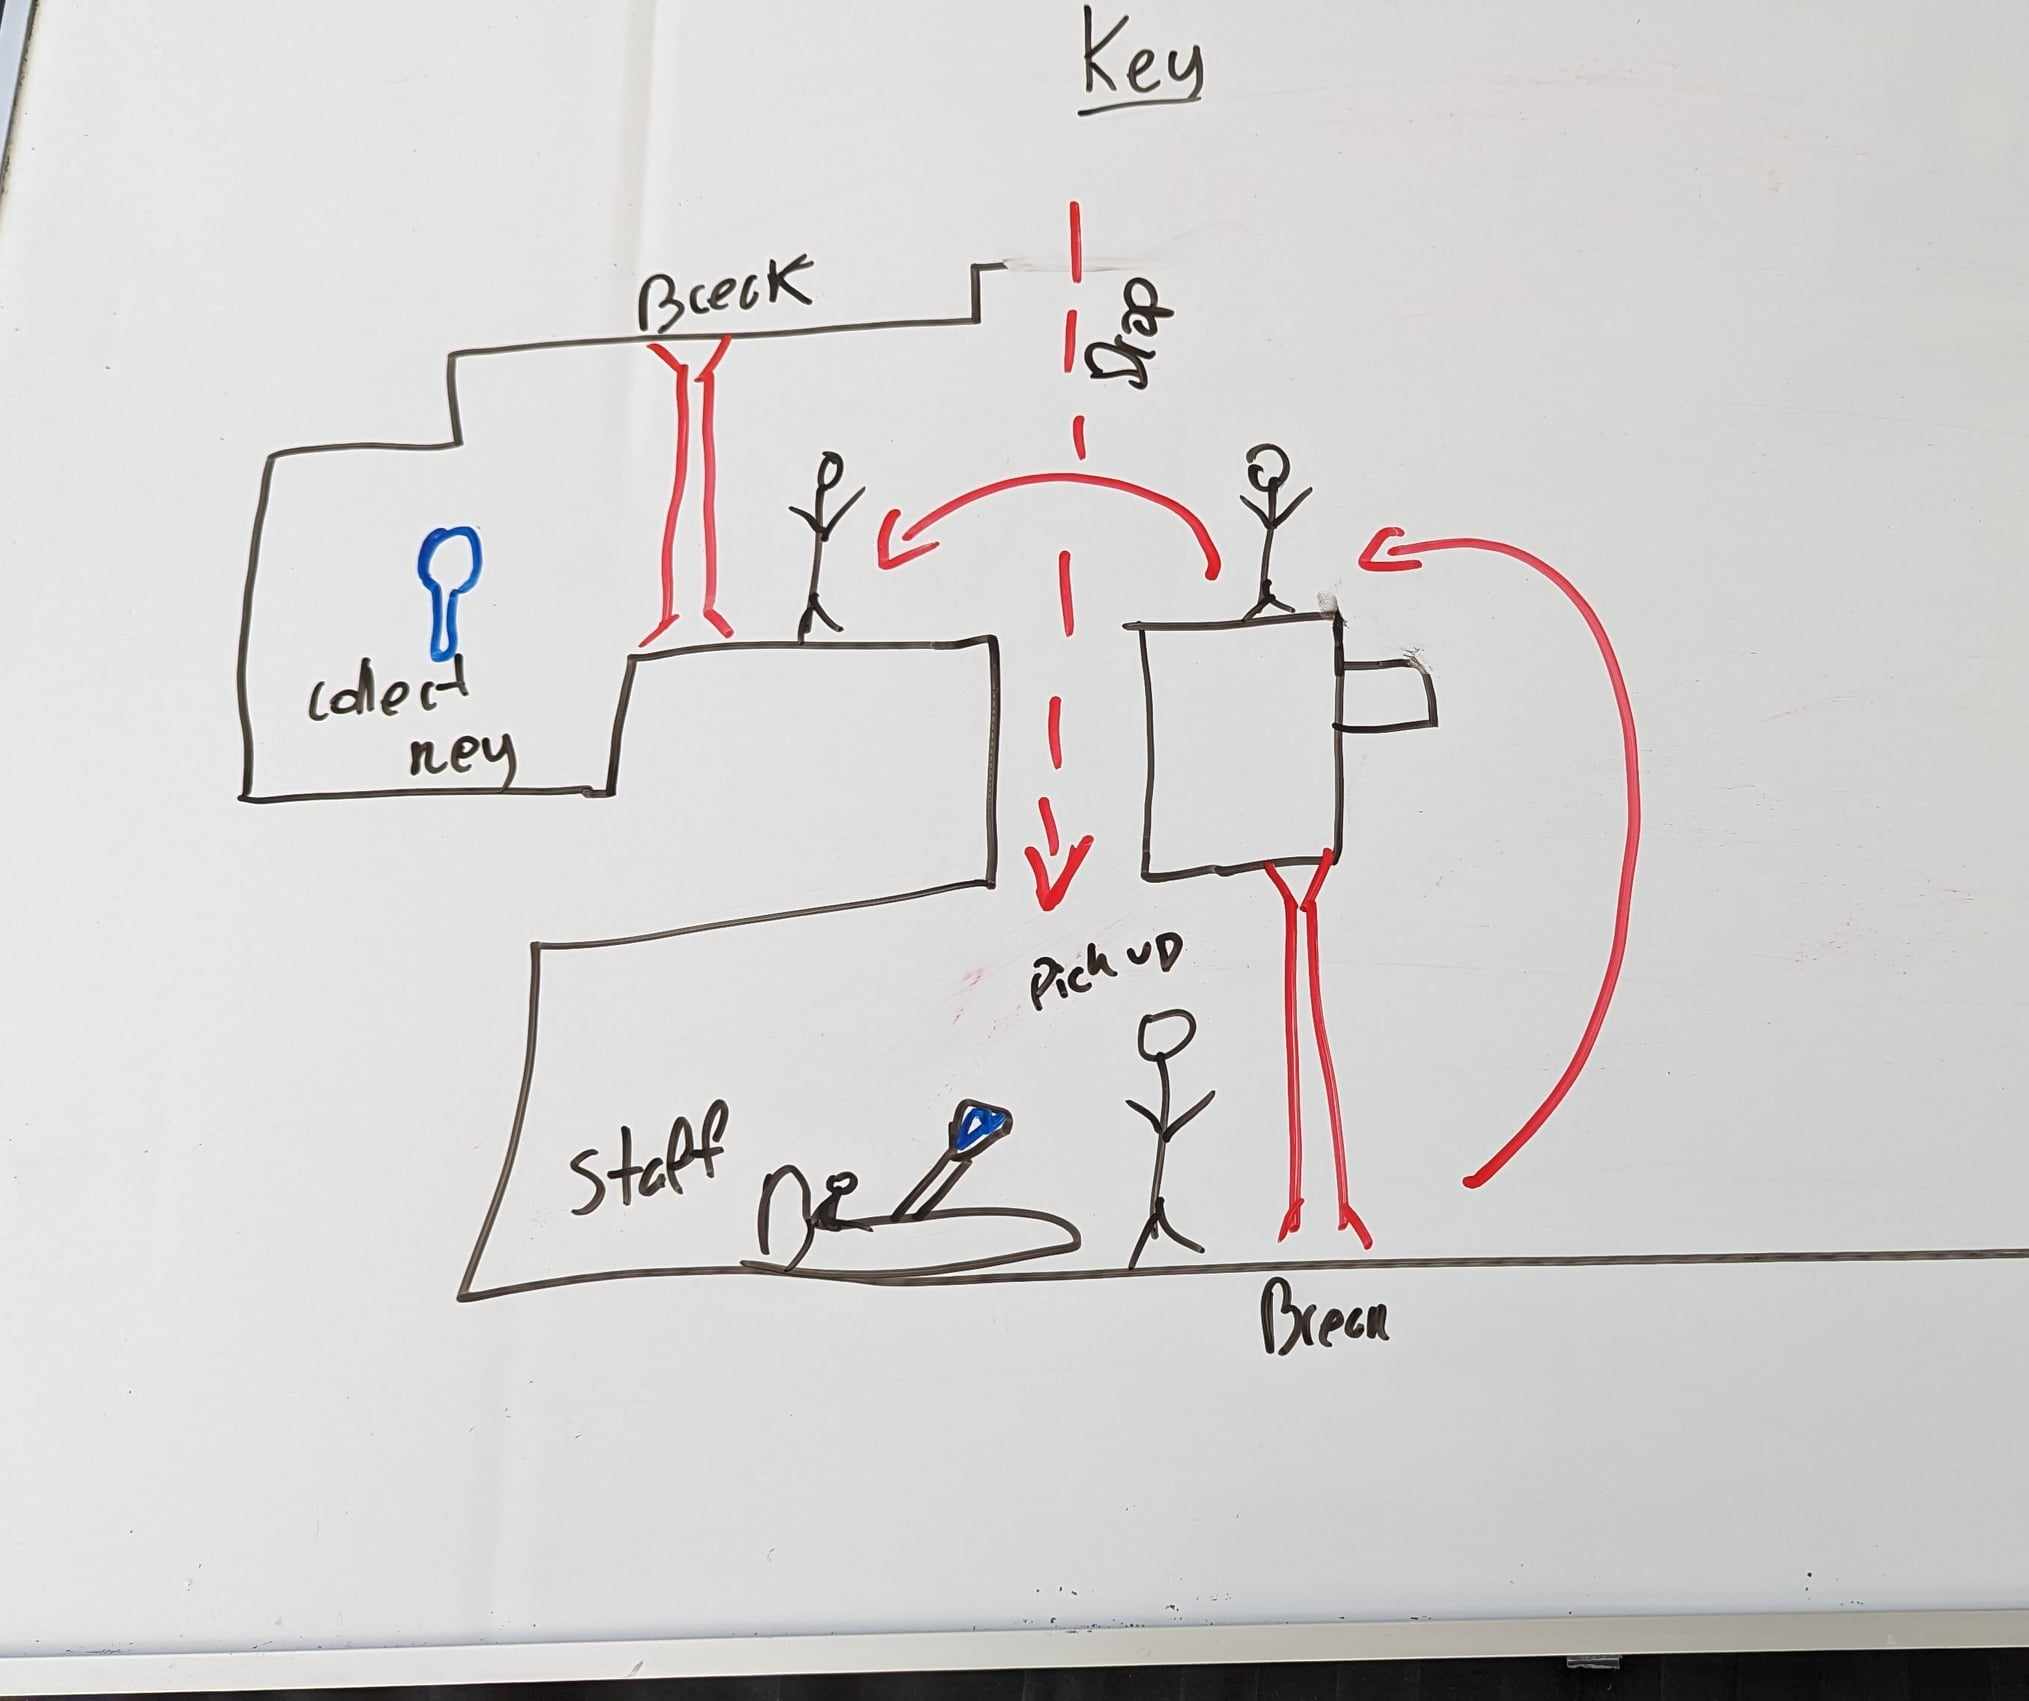 Key
Breack
Drop
collect
key
Pick up
Staff
Break